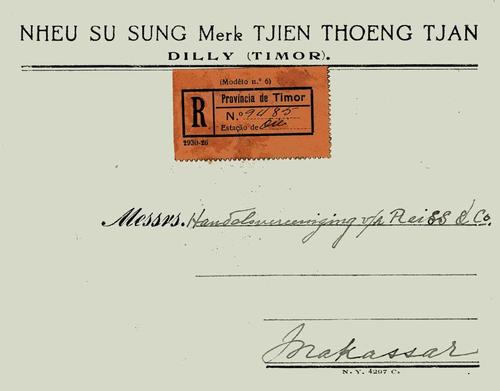 NHEU SU SUNG Merk TJIEN THOENG TJAN
DILLY (TIMOR).
(Modêlo n.º 6)
R
Província de Timor
N.º 9485
Estação de
1930-26
Messrs. Handelsvereeniging v/h Reiss & Co.
Makassar
N. Y. 4297 C.